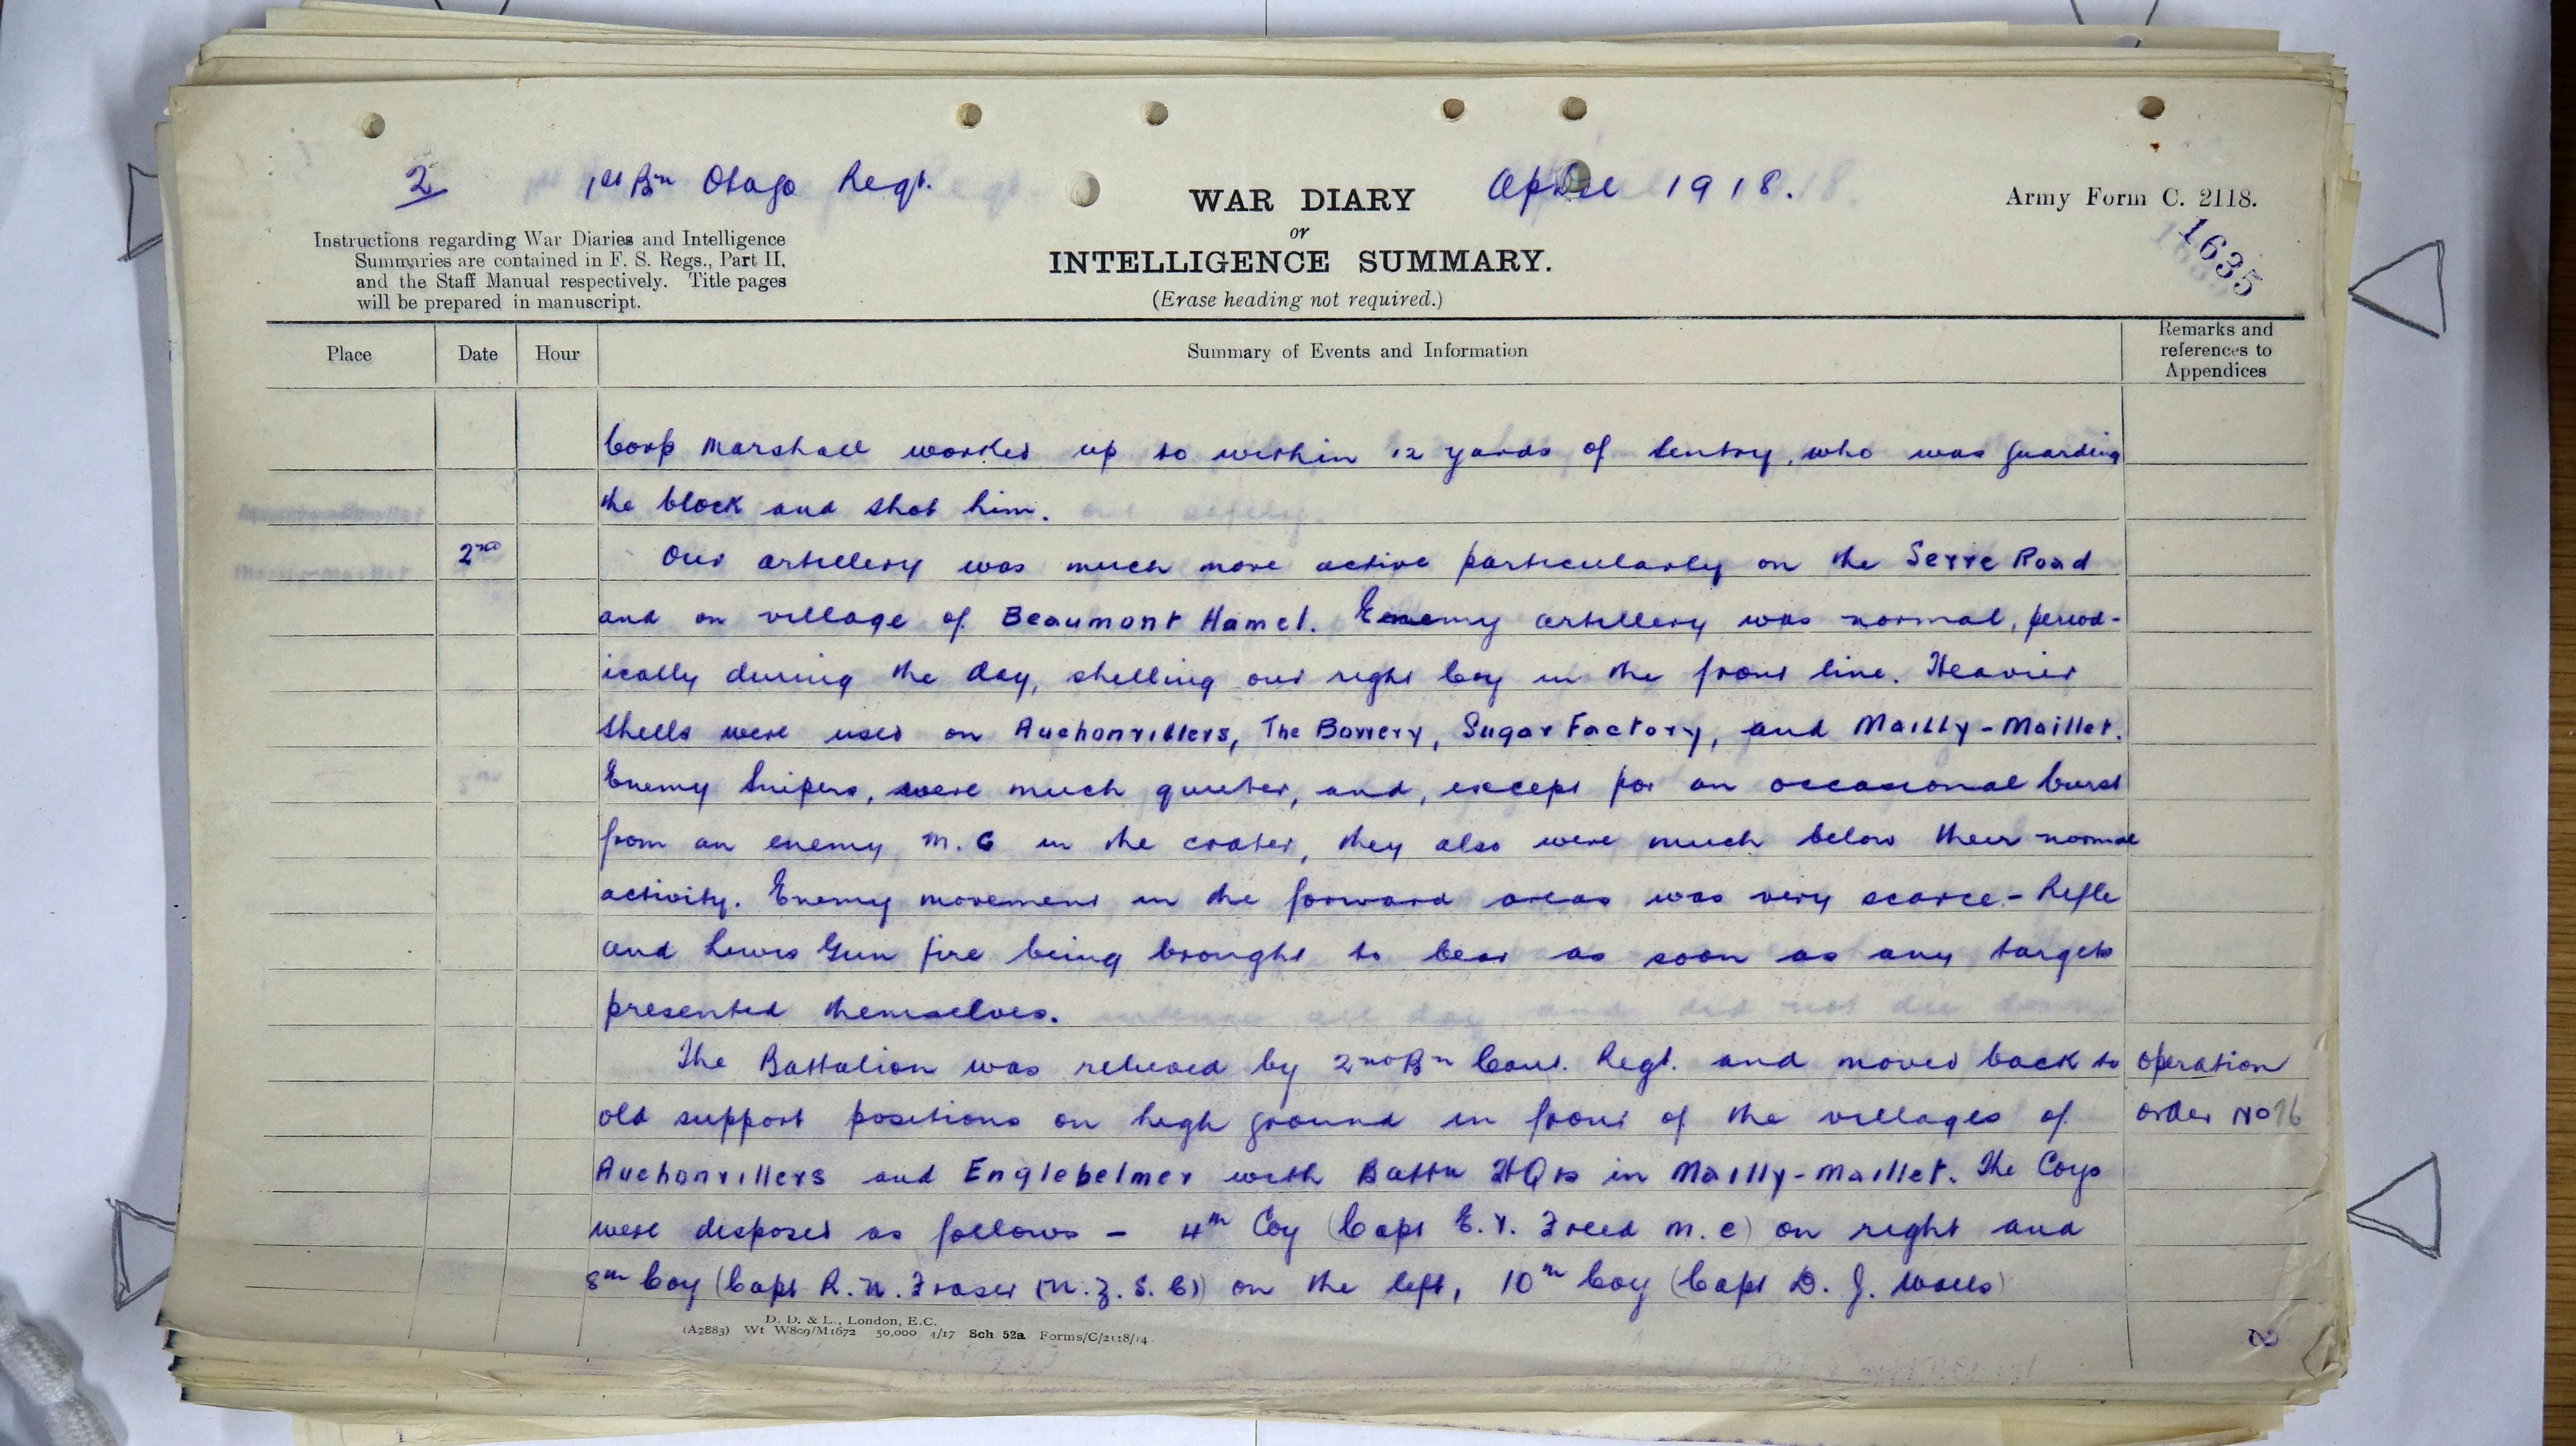 2
1st Bn Otago Regt.
WAR DIARY
April 1918.
Army Form C. 2118.
or
INTELLIGENCE SUMMARY.
(Erase heading not required.)
1635
Instructions regarding War Diaries and Intelligence
Summaries are contained in F. S. Regs., Part II,
and the Staff Manual respectively. Title pages
will be prepared in manuscript.
Place
Date
Hour
Summary of Events and Information
Remarks and
references to
Appendices
Corp Marshall worked up to within 12 yards of sentry, who was guarding
the block and shot him.
2nd
Our artillery was much more active particularly on the Serre Road
and on village of Beaumont Hamel. Enemy artillery was normal, period-
ically during the day, shelling our right Coy in the front line. Heavier
shells were used on Auchonvillers, The Bowery, Sugar Factory, and Mailly-Maillet.
Enemy Snipers, were much quieter, and, except for an occasional burst
from an enemy M.G in the crater, they also were much below their normal
activity. Enemy movement in the forward areas was very scarce - Rifle
and Lewis Gun fire being brought to bear as soon as any targets
presented themselves.
The Battalion was relieved by 2nd Bn Cant. Regt. and moved back to
operation
old support positions on high ground in front of the villages of
order No 76
Auchonvillers and Englebelmer with Battn HQrs in Mailly-Maillet. The Coys
were disposed as follows - 4th Coy (Capt E. V. Freed M.C) on right and
8th Coy (Capt R. N. Fraser (N.Z.S.C)) on the left, 10th Coy (Capt D. J. Wells)
D. D. & L., London, E.C.
(A7883) Wt W809/M1672 50,000 4/17 Sch 52a Forms/C/2118/14